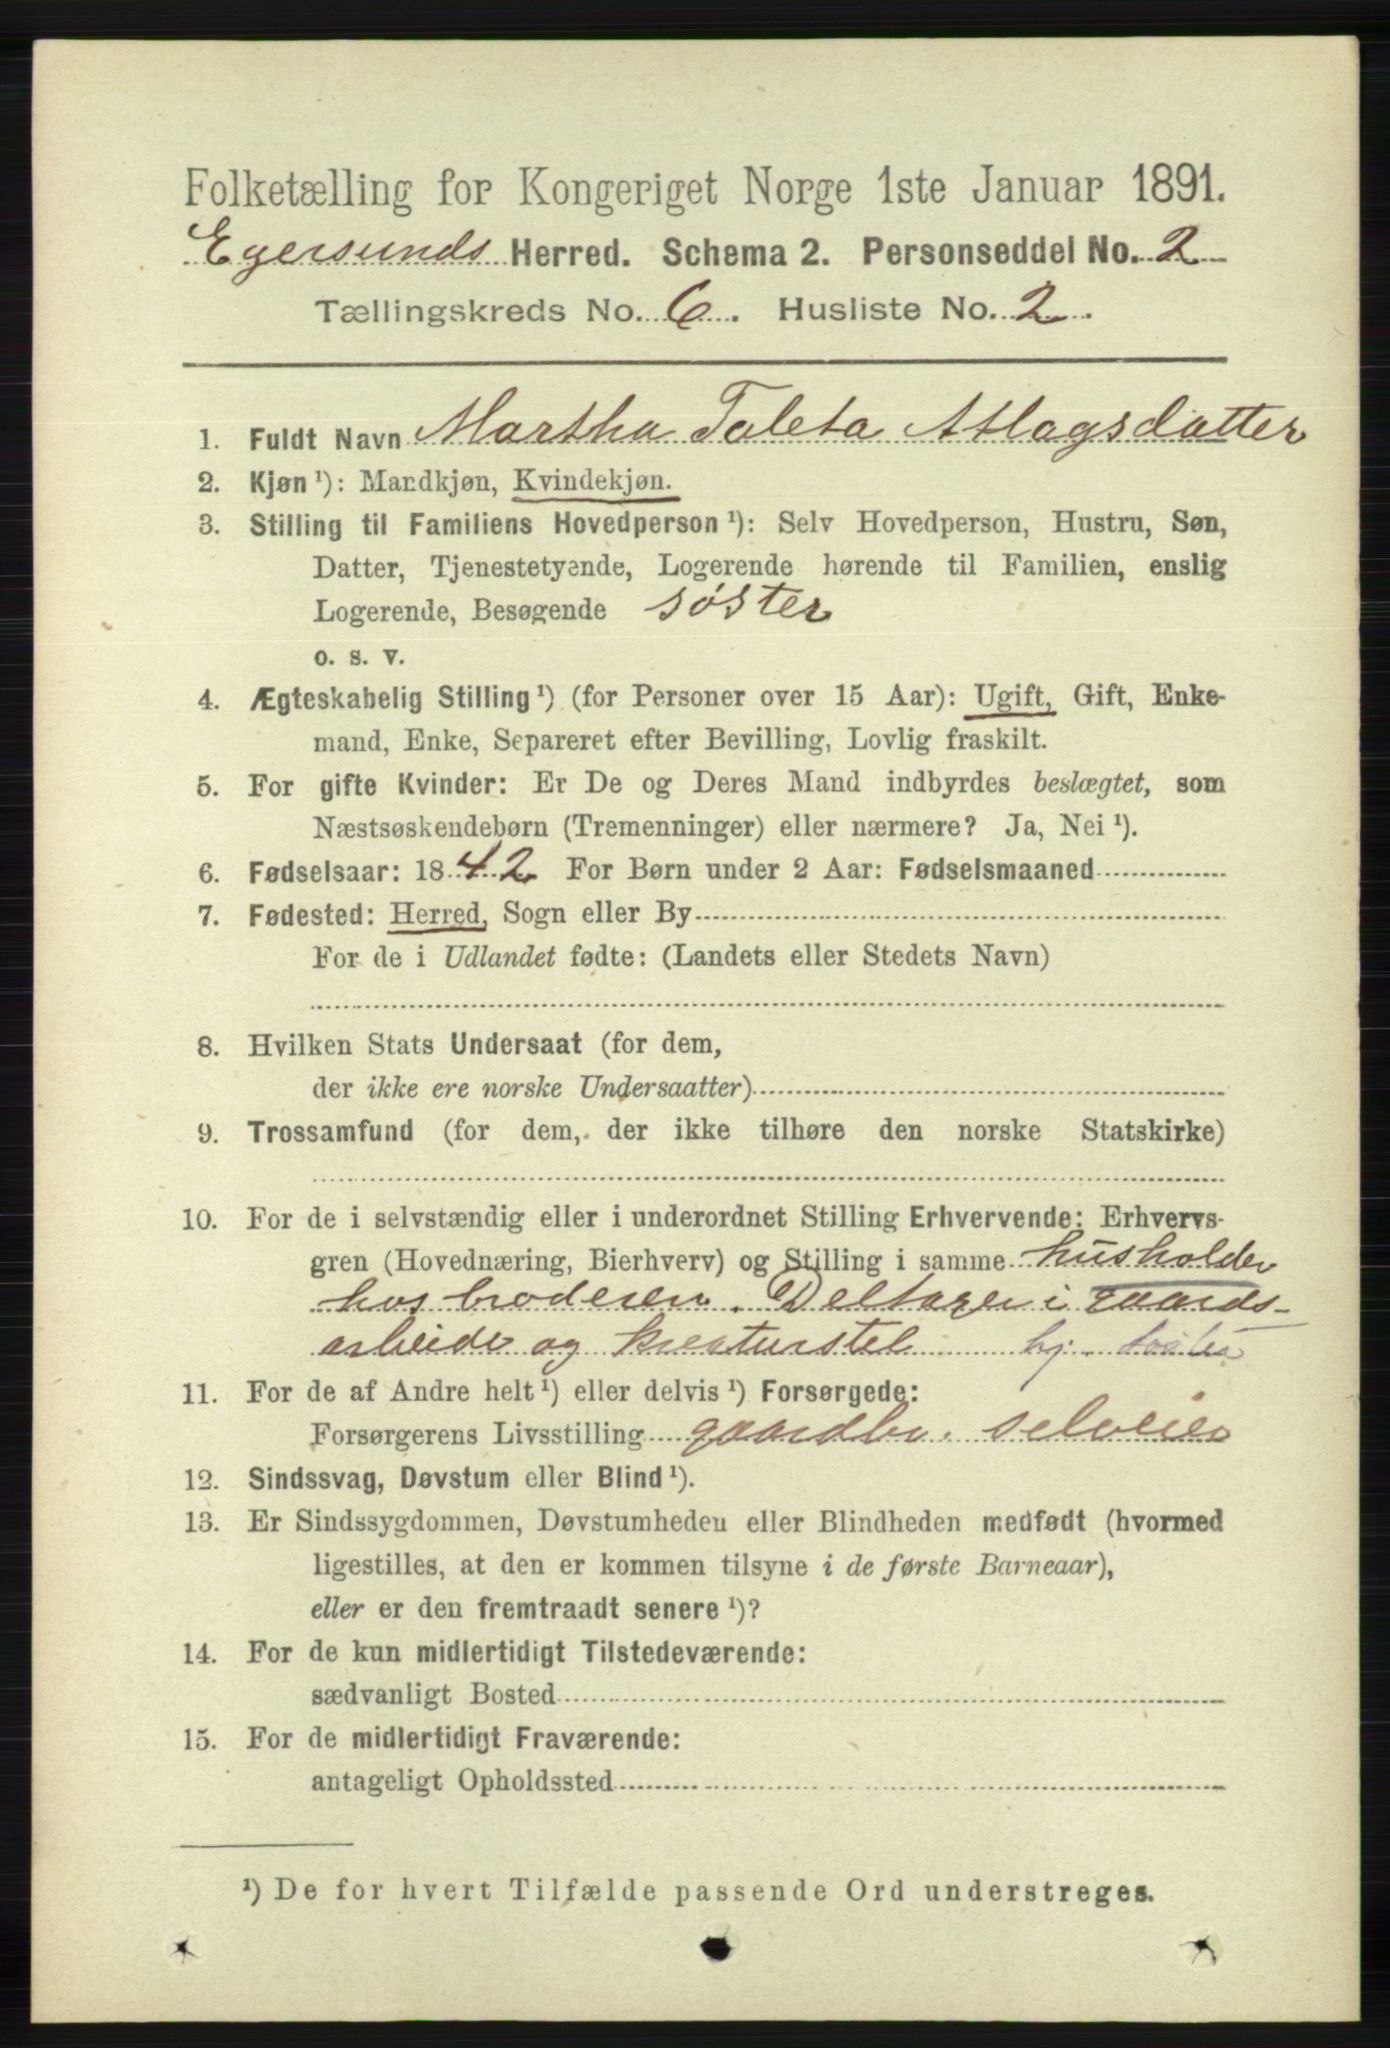 Folketælling for Kongeriget Norge 1ste Januar 1891.
Egersunds Herred. Schema 2. Personseddel No. 2
Tællingskreds No. 6. Husliste No. 2.
1. Fuldt Navn Martha Taleta Atlagsdatter
2. Kjøn ¹): Mandkjøn, Kvindekjøn.
3. Stilling til Familiens Hovedperson ¹): Selv Hovedperson, Hustru, Søn,
Datter, Tjenestetyende, Logerende hørende til Familien, enslig
Logerende, Besøgende søster
o. s. v.
4. Ægteskabelig Stilling ¹) (for Personer over 15 Aar): Ugift, Gift, Enke-
mand, Enke, Separeret efter Bevilling, Lovlig fraskilt.
5. For gifte Kvinder: Er De og Deres Mand indbyrdes beslægtet, som
Næstsøskendebørn (Tremenninger) eller nærmere? Ja, Nei ¹).
6. Fødselsaar: 1842 For Børn under 2 Aar: Fødselsmaaned
7. Fødested: Herred, Sogn eller By
For de i Udlandet fødte: (Landets eller Stedets Navn)
8. Hvilken Stats Undersaat (for dem,
der ikke ere norske Undersaatter)
9. Trossamfund (for dem, der ikke tilhøre den norske Statskirke)
10. For de i selvstændig eller i underordnet Stilling Erhvervende: Erhvervs-
gren (Hovednæring, Bierhverv) og Stilling i samme husholder
hos broderen. Deltager i gaards-
arbeide og kreaturstel hj. søster
11. For de af Andre helt ¹) eller delvis ¹) Forsørgede:
Forsørgerens Livsstilling gaardbr. selveier
12. Sindssvag, Døvstum eller Blind ¹).
13. Er Sindssygdommen, Døvstumheden eller Blindheden medfødt (hvormed
ligestilles, at den er kommen tilsyne i de første Barneaar),
eller er den fremtraadt senere ¹)?
14. For de kun midlertidigt Tilstedeværende:
sædvanligt Bosted
15. For de midlertidigt Fraværende:
antageligt Opholdssted
¹) De for hvert Tilfælde passende Ord understreges.